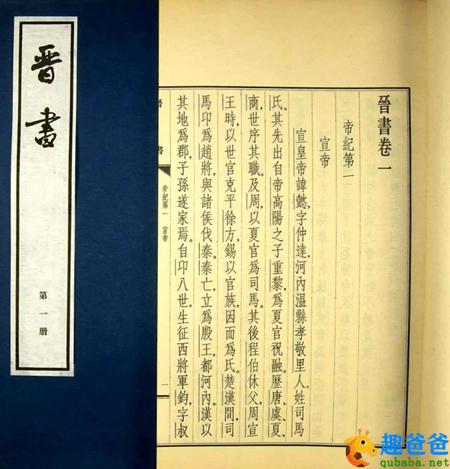 晉書
第一册
晉書卷一
帝紀第一
宣帝
宣皇帝諱懿，字仲達，河內溫縣孝敬里人，姓司馬
氏。其先出自帝高陽之子重黎，爲夏官祝融。歷唐、虞、夏、
商，世序其職。及周，以夏官爲司馬。其後程伯休父，周宣
王時，以世官克平徐方，錫以官族，因而爲氏。楚漢間，司
馬卬爲趙將，與諸侯伐秦。秦亡，立爲殷王，都河內。漢以
其地爲郡，子孫遂家焉。自卬八世，生征西將軍鈞，字叔
書
帝紀第一 宣帝
一
趣爸爸
qubaba.net